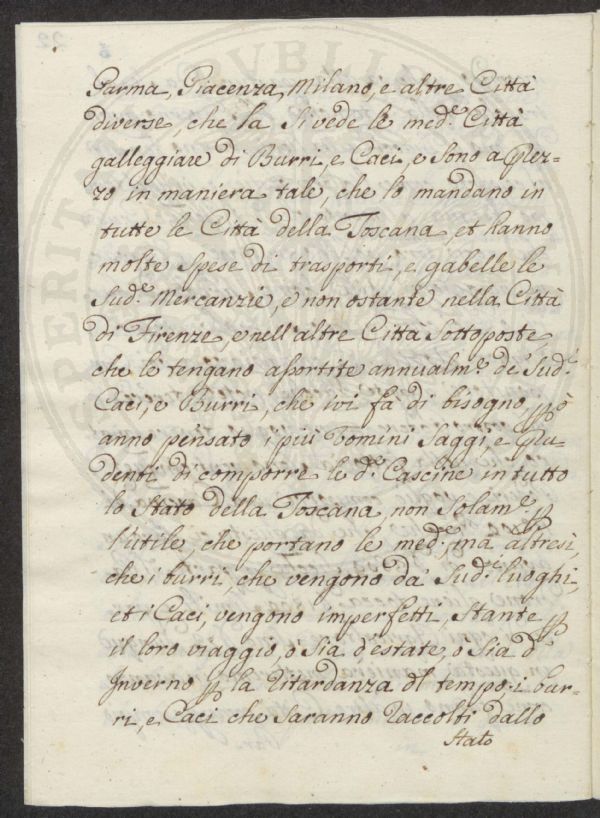 Parma, Piacenza, Milano, e altre Città
diverse, che la si vede le med.e Città
galleggiare di Burri, e Caci, e sono a prez-
zo in maniera tale, che lo mandano in
tutte le Città della Toscana, et hanno
molte spese di trasporti, e gabelle le
sud.e Mercanzie, e non ostante nella Città
di Firenze, e nell'altre Città sottoposte,
che le tengano assortite annualm.e de' sud.i
Caci, e Burri, che ivi fà di bisogno, però
anno pensato i più Uomini saggi, e pru-
denti di comporre le d.e Cascine in tutto
lo Stato della Toscana non solam.e p
l'utile, che portano le med.e, mà altresì,
che i burri, che vengono da' sud.i luoghi,
et i Caci, vengono imperfetti, stante p
il loro viaggio, ò sia d'estate, ò sia d'
Inverno p la ritardanza del tempo, i bur-
ri, e Caci che saranno raccolti dallo
Stato
PUBLI